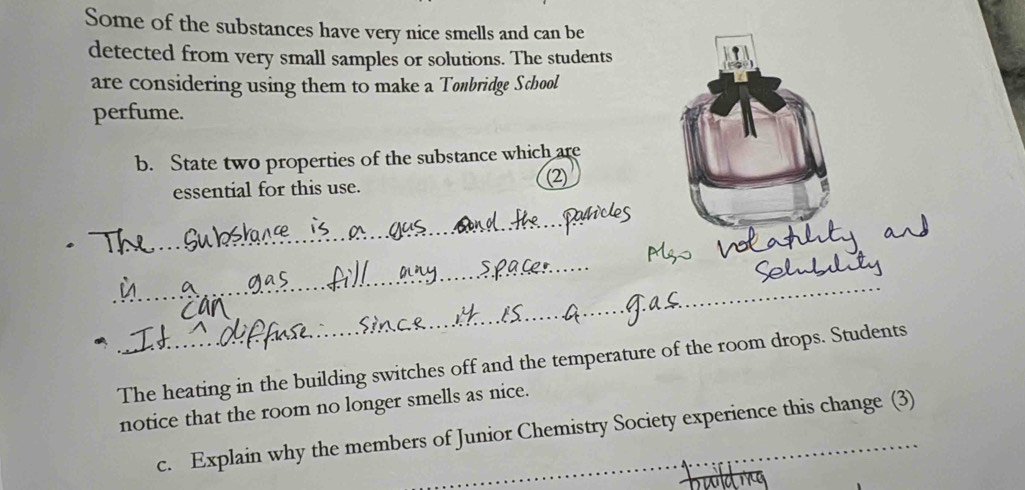 Some of the substances have very nice smells and can be
detected from very small samples or solutions. The students
are considering using them to make a Tonbridge School
perfume.
b. State two properties of the substance which are
essential for this use. (2)
• The substance is a gas and the particles
in a gas fill any space.
Also volatility and
Solubility
• It can diffuse since it is a gas
The heating in the building switches off and the temperature of the room drops. Students
notice that the room no longer smells as nice.
c. Explain why the members of Junior Chemistry Society experience this change (3)
building